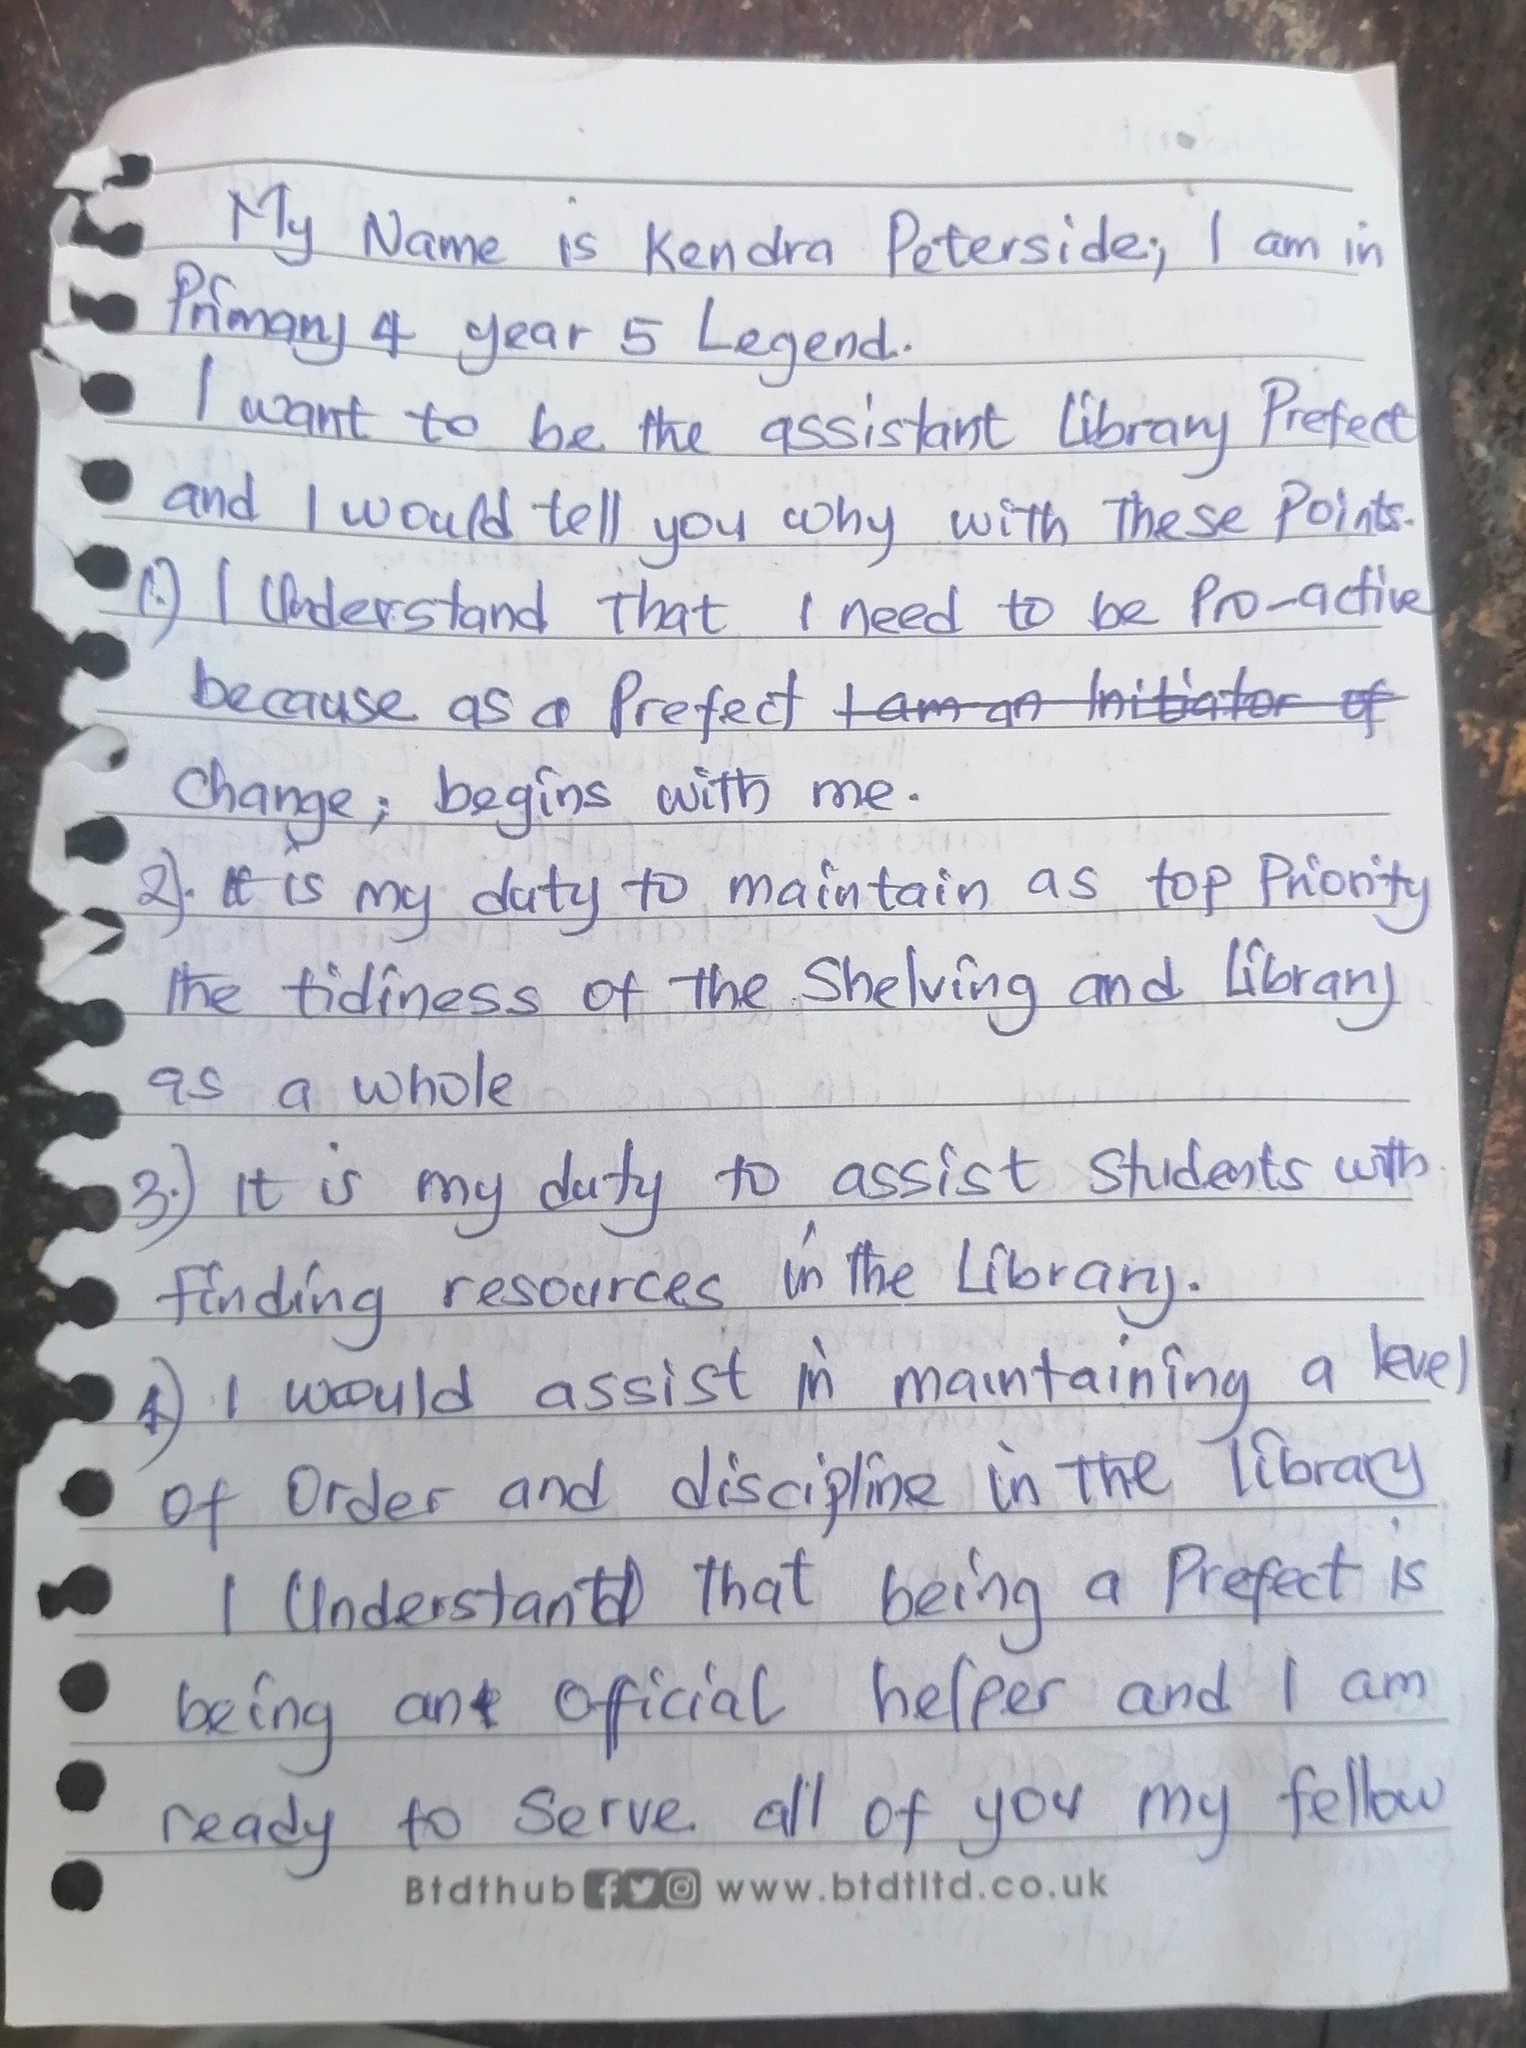 My Name is Kendra Peterside; I am in
Primary 4 year 5 Legend.
I want to be the assistant library Prefect
and I would tell you why with These Points.
1.) I Understand That I need to be Pro-active
because as a Prefect I am an Initiator of
change; begins with me.
2). it is my duty to maintain as top Priority
the tidiness of the Shelving and library
as a whole
3.) it is my duty to assist Students with
finding resources in the Library.
4) I would assist in maintaining a level
of Order and discipline in The library
I Understand That being a Prefect is
being an oficial helper and I am
ready to Serve all of you my fellow
Btdthub www.btdtltd.co.uk